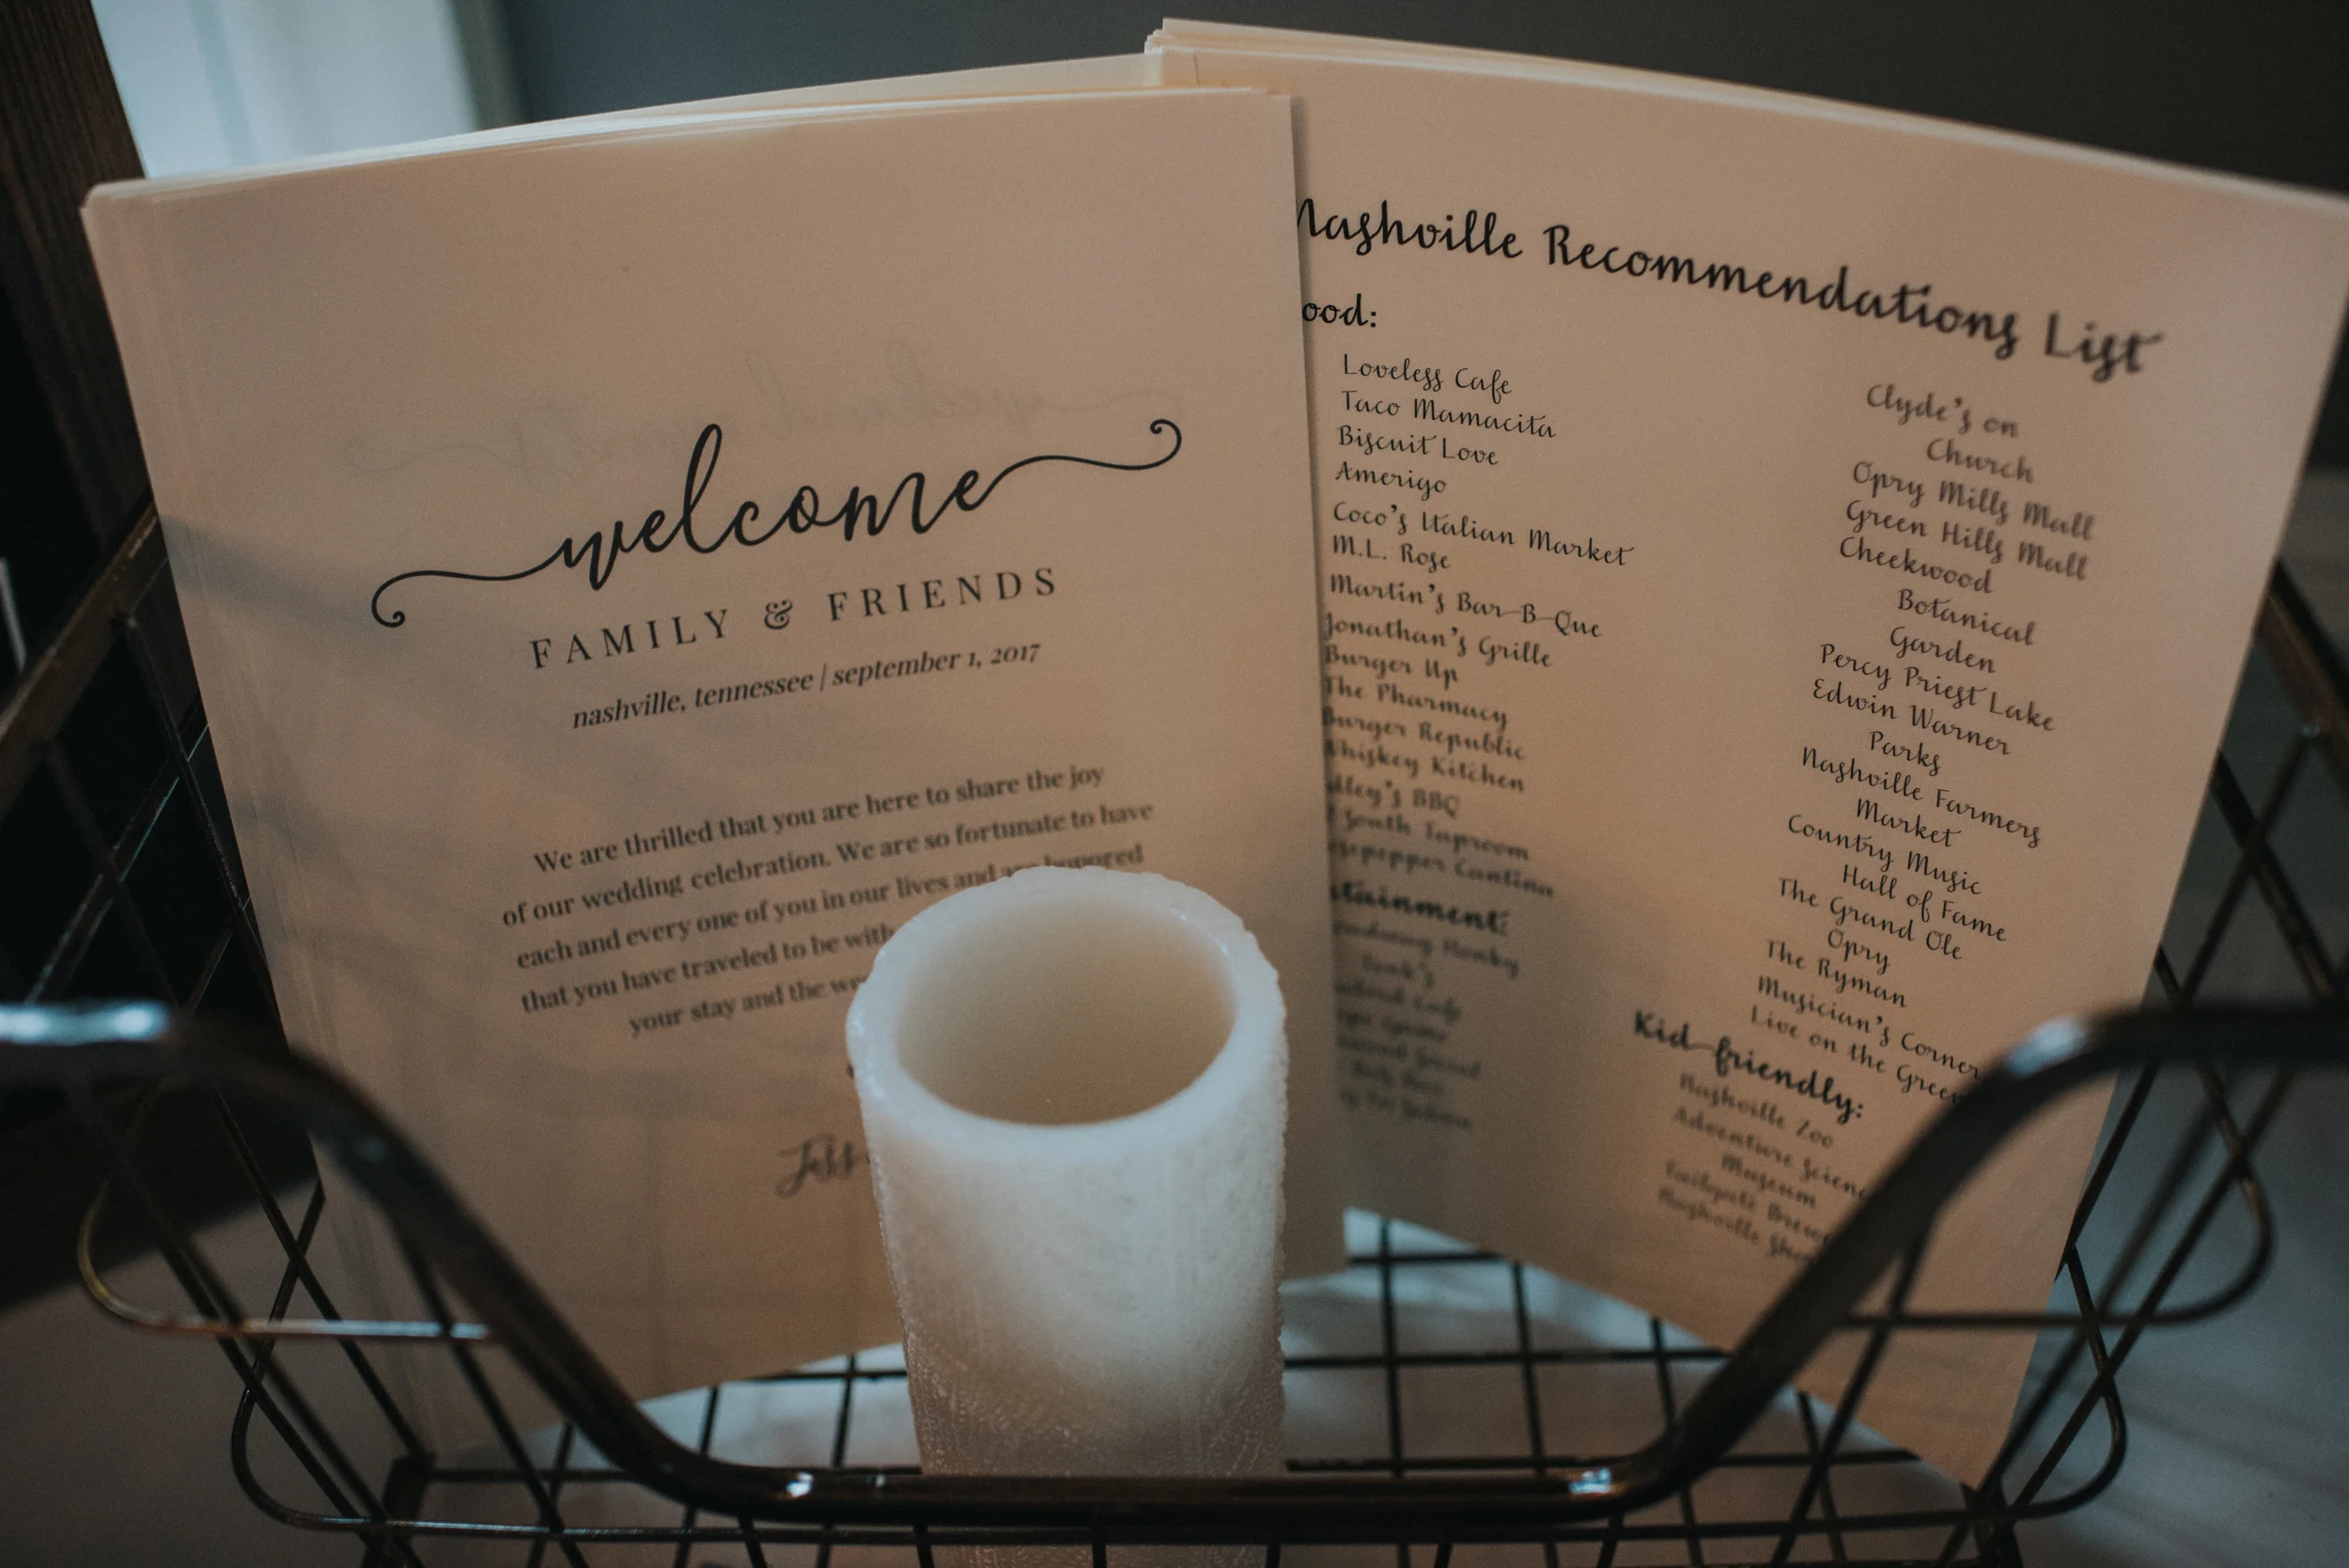 welcome
FAMILY & FRIENDS
nashville, tennessee | september 1, 2017
We are thrilled that you are here to share the joy
of our wedding celebration. We are so fortunate to have
each and every one of you in our lives and are honored
that you have traveled to be with
your stay and the
Nashville Recommendations List
ood:
Loveless Cafe
Taco Mamacita
Biscuit Love
Amerigo
Coco's Italian Market
M.L. Rose
Martin's Bar-B-Que
Jonathan's Grille
Burger Up
The Pharmacy
Burger Republic
Whiskey Kitchen
lley's BBQ
South Taproom
sepepper Cantina
tainment:
Honky
Tonk's
Clyde's on
Church
Opry Mills Mall
Green Hills Mall
Cheekwood
Botanical
Garden
Percy Priest Lake
Edwin Warner
Parks
Nashville Farmers
Market
Country Music
Hall of Fame
The Grand Ole
Opry
The Ryman
Musician's Corner
Live on the Green
Kid friendly:
Nashville Zoo
Adventure Scienc
Museum
Nashville